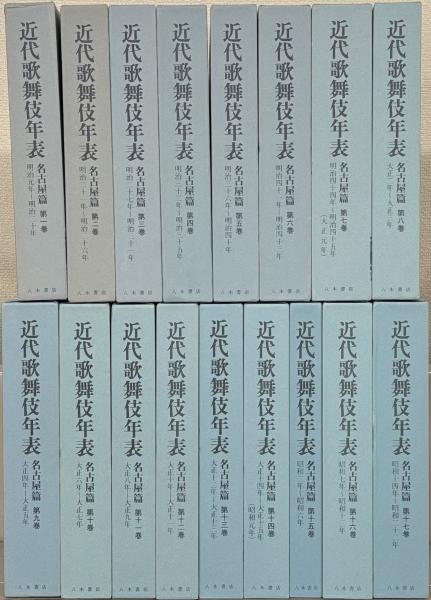 近代歌舞伎年表 名古屋篇 第一巻
明治元年－明治二十年
八木書店
近代歌舞伎年表 名古屋篇 第二巻
明治二十一年－明治二十六年
八木書店
近代歌舞伎年表 名古屋篇 第三巻
明治二十七年－明治三十一年
八木書店
近代歌舞伎年表 名古屋篇 第四巻
明治三十二年－明治三十五年
八木書店
近代歌舞伎年表 名古屋篇 第五巻
明治三十六年－明治四十年
八木書店
近代歌舞伎年表 名古屋篇 第六巻
明治四十一年－明治四十三年
八木書店
近代歌舞伎年表 名古屋篇 第七巻
明治四十四年－明治四十五年
(大正元年)
八木書店
近代歌舞伎年表 名古屋篇 第八巻
大正二年－大正三年
八木書店
近代歌舞伎年表 名古屋篇 第九巻
大正四年－大正五年
八木書店
近代歌舞伎年表 名古屋篇 第十巻
大正六年－大正七年
八木書店
近代歌舞伎年表 名古屋篇 第十一巻
大正八年－大正九年
八木書店
近代歌舞伎年表 名古屋篇 第十二巻
大正十年－大正十一年
八木書店
近代歌舞伎年表 名古屋篇 第十三巻
大正十二年－大正十三年
八木書店
近代歌舞伎年表 名古屋篇 第十四巻
大正十四年－大正十五年
(昭和元年)
八木書店
近代歌舞伎年表 名古屋篇 第十五巻
昭和二年－昭和六年
八木書店
近代歌舞伎年表 名古屋篇 第十六巻
昭和七年－昭和十三年
八木書店
近代歌舞伎年表 名古屋篇 第十七巻
昭和十四年－昭和二十二年
八木書店